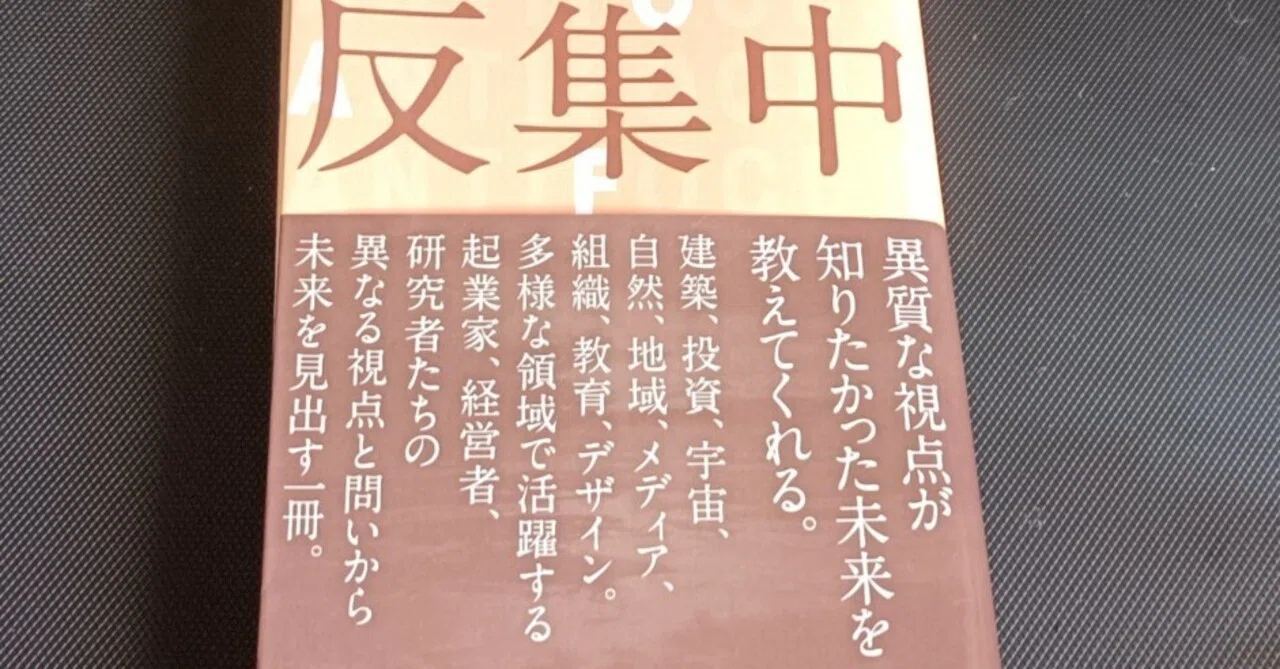 反集中
異質な視点が
知りたかった未来を
教えてくれる。
建築、投資、宇宙、
自然、地域、メディア、
組織、教育、デザイン。
多様な領域で活躍する
起業家、経営者、
研究者たちの
異なる視点と問いから
未来を見出す一冊。